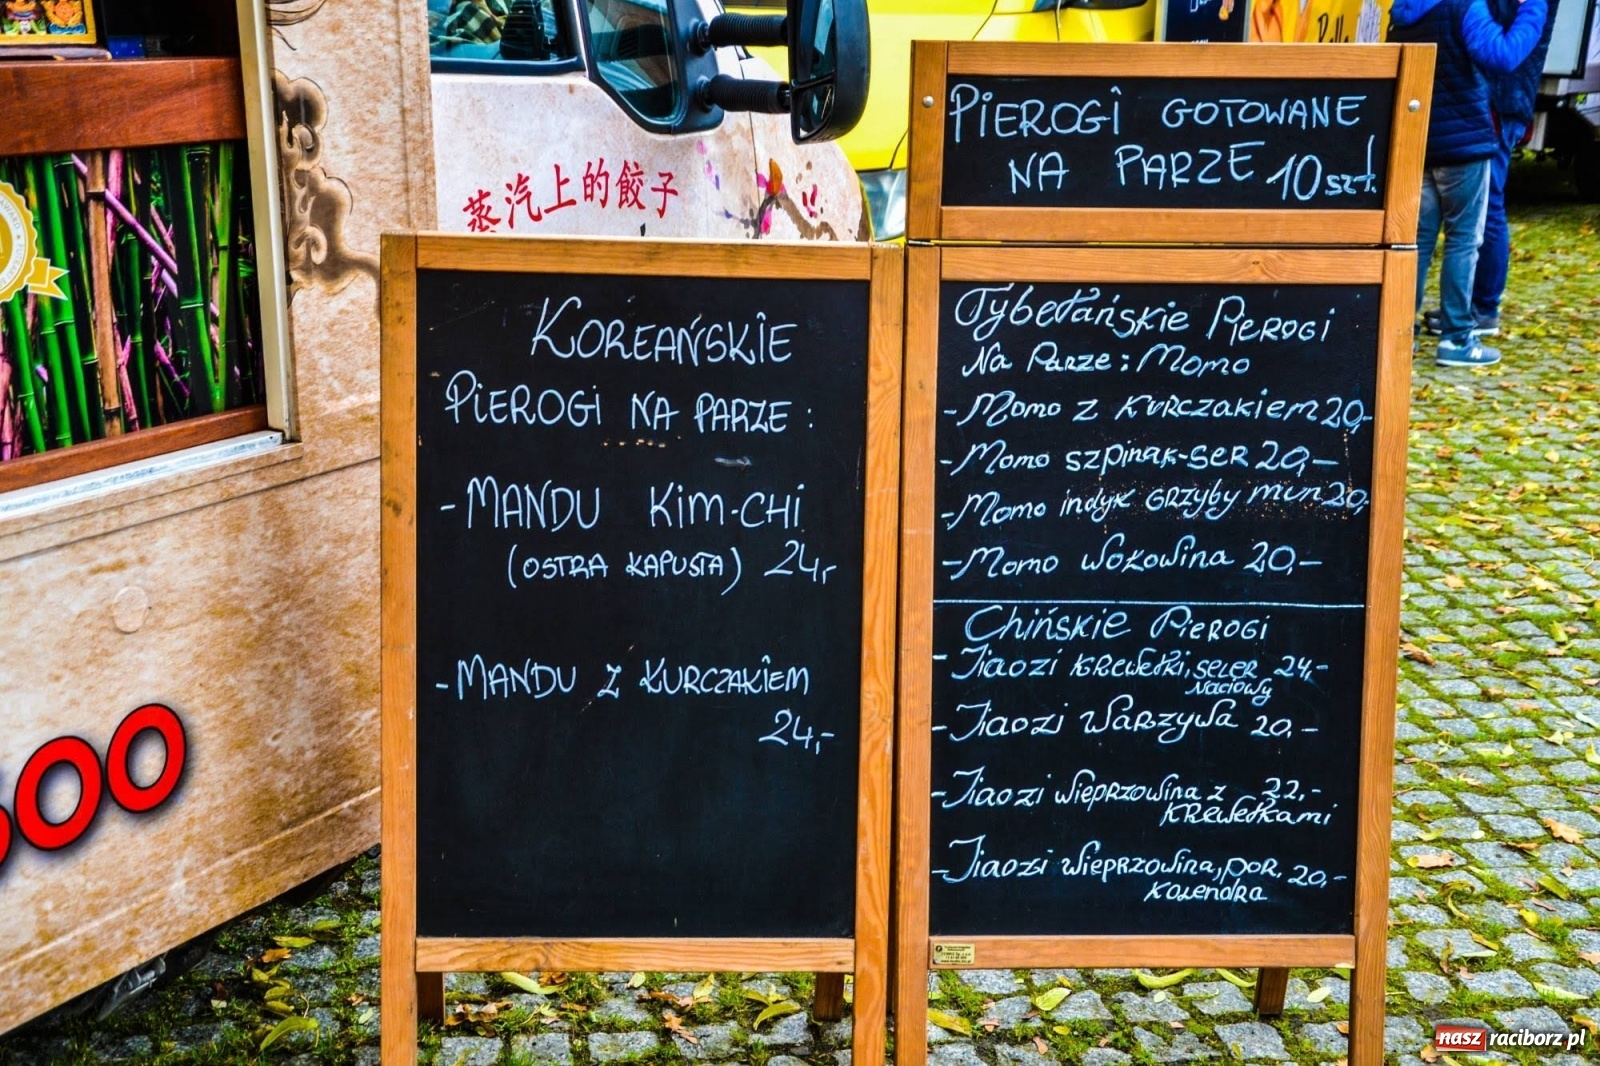 蒸汽上的餃子
PIEROGI GOTOWANE
NA PARZE 10 szt.
KOREAŃSKIE
PIEROGI NA PARZE :
- MANDU KIM-CHI
(OSTRA KAPUSTA) 24,-
- MANDU Z KURCZAKIEM
24,-
Tybetańskie Pierogi
Na Parze : Momo
- Momo z kurczakiem 20,-
- Momo szpinak-ser 20,-
- Momo indyk grzyby mun 20,-
- Momo wołowina 20,-
Chińskie Pierogi
- Jiaozi krewetki, seler 24,-
naciowy
- Jiaozi warzywa 20,-
- Jiaozi wieprzowina z 22,-
krewetkami
- Jiaozi wieprzowina, por, 20,-
kolendra
nasz raciborz.pl